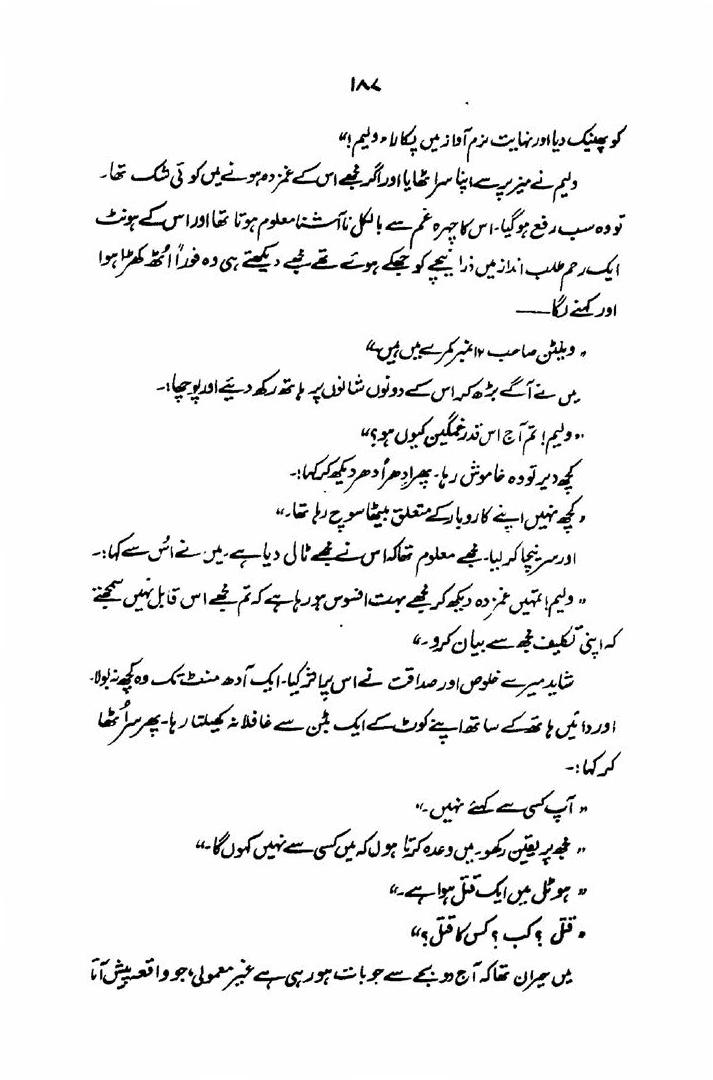 ۱۸۷
کو پھینک دیا اور نہایت نرم آواز میں پکارا "ولیم!"
ولیم نے میز پر سے اپنا سر اٹھایا اور اگر مجھے اس کے غمزدہ ہونے میں کوئی شک تھا۔
تو وہ سب رفع ہو گیا۔ اس کا چہرہ غم سے بالکل ناآشنا معلوم ہوتا تھا اور اس کے ہونٹ
ایک رحم طلب انداز میں ذرا نیچے کو جھکے ہوئے تھے مجھے دیکھتے ہی وہ فوراً اٹھ کھڑا ہوا
اور کہنے لگا ——
"ویلٹن صاحب ۱۲ نمبر کمرے میں ہیں۔"
میں نے آگے بڑھ کر اس کے دونوں شانوں پر ہاتھ رکھ دیئے اور پوچھا:۔
"ولیم! تم آج اس قدر غمگین کیوں ہو؟"
کچھ دیر تو وہ خاموش رہا۔ پھر اِدھر اُدھر دیکھ کر کہا:۔
"کچھ نہیں اپنے کاروبار کے متعلق بیٹھا سوچ رہا تھا۔"
اور سر نیچا کر لیا۔ مجھے معلوم تھا کہ اس نے مجھے ٹال دیا ہے۔ میں نے اُس سے کہا:۔
"ولیم! تمہیں غمزدہ دیکھ کر مجھے بہت افسوس ہو رہا ہے کہ تم مجھے اس قابل نہیں سمجھتے
کہ اپنی تکلیف مجھ سے بیان کرو۔"
شاید میرے خلوص اور صداقت نے اس پر اثر کیا۔ ایک آدھ منٹ تک وہ کچھ نہ بولا۔
اور دائیں ہاتھ کے ساتھ اپنے کوٹ کے ایک بٹن سے غافلانہ کھیلتا رہا۔ پھر سر اُٹھا
کر کہا:۔
"آپ کسی سے کہئے نہیں۔"
"مجھ پر یقین رکھو۔ میں وعدہ کرتا ہوں کہ میں کسی سے نہیں کہوں گا۔"
"ہوٹل میں ایک قتل ہوا ہے۔"
"قتل؟ کب؟ کس کا قتل؟"
میں حیران تھا کہ آج دو بجے سے جو بات ہو رہی ہے غیر معمولی، جو واقعہ پیش آتا